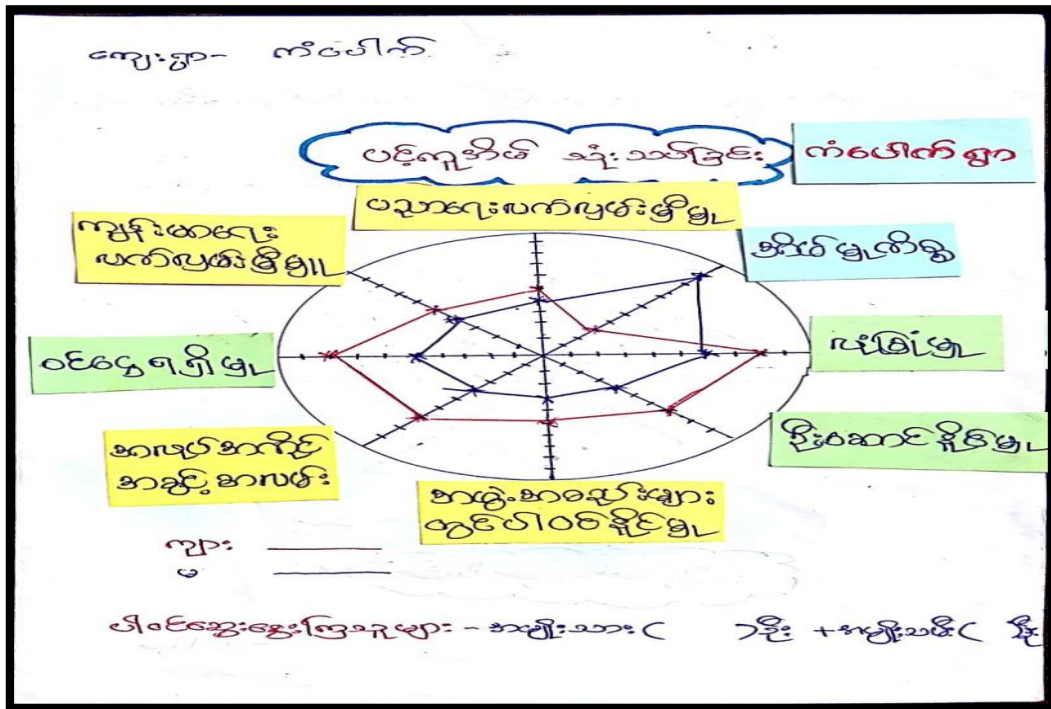 ကျေးရွာ- ကံပေါက်
ပင့်ကူအိမ် သုံးသပ်ခြင်း
ကံပေါက်ရွာ
ပညာရေးလက်လှမ်းမှီမှု
ကျန်းမာရေး
လက်လှမ်းမှီမှု
အိမ်မှုကိစ္စ
ဝင်ငွေရရှိမှု
လုံခြုံမှု
ဦးဆောင်နိုင်မှု
အလုပ်အကိုင်
အခွင့်အလမ်း
အဖွဲ့အစည်းများ
တွင်ပါဝင်နိုင်မှု
ကျား
မ
ပါဝင်ဆွေးနွေးကြသူများ - အမျိုးသား ( ) ဦး + အမျိုးသမီး ( ) ဦး